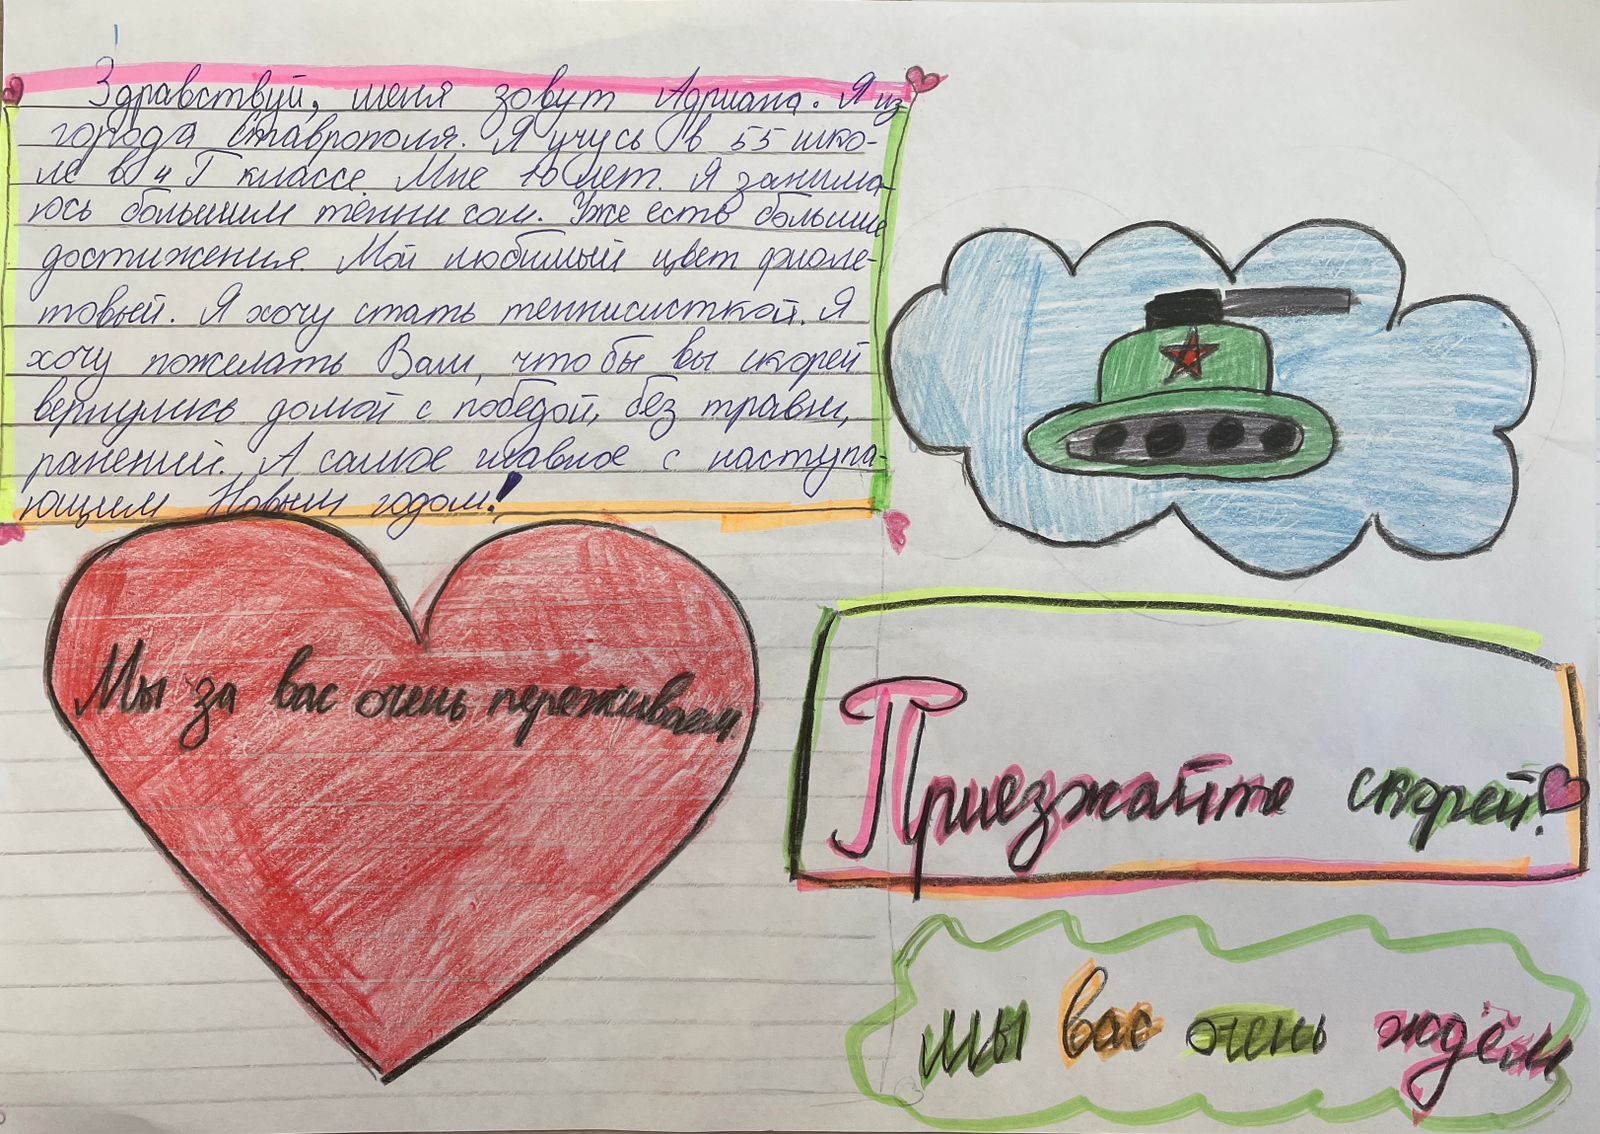 Здравствуй, меня зовут Адриана. Я из
города Ставрополя. Я учусь в 55 шко-
ле в 4 Г классе. Мне 10 лет. Я занима-
юсь большим теннисом. Уже есть большие
достижения. Мой любимый цвет фиоле-
товый. Я хочу стать теннисисткой. Я
хочу пожелать Вам, что бы вы скорей
вернулись домой с победой, без травм,
ранений. А самое главное с наступа-
ющим Новым годом!
Мы за вас очень переживаем
Приезжайте скорей!
мы вас очень ждём